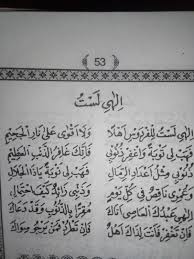 53
اِلٰهِي لَسْتُ
اِلٰهِي لَسْتُ لِلْفِرْدَوْسِ اَهْلًا وَلَا اَقْوَى عَلَى نَارِ الْجَحِيْمِ
فَهَبْ لِي تَوْبَةً وَاغْفِرْ ذُنُوْبِي فَاِنَّكَ غَافِرُ الذَّنْبِ الْعَظِيْمِ
ذُنُوْبِي مِثْلُ اَعْدَادِ الرِّمَالِ فَهَبْ لِي تَوْبَةً يَا ذَا الْجَلَالِ
وَعُمْرِي نَاقِصٌ فِي كُلِّ يَوْمٍ وَذَنْبِي زَائِدٌ كَيْفَ احْتِمَالِي
اِلٰهِي عَبْدُكَ الْعَاصِي اَتَاكَ مُقِرًّا بِالذُّنُوْبِ وَقَدْ دَعَاكَ
فَاِنْ تَغْفِرْ فَاَنْتَ لِذَاكَ اَهْلٌ فَاِنْ تَطْرُدْ فَمَنْ سِوَاكَ